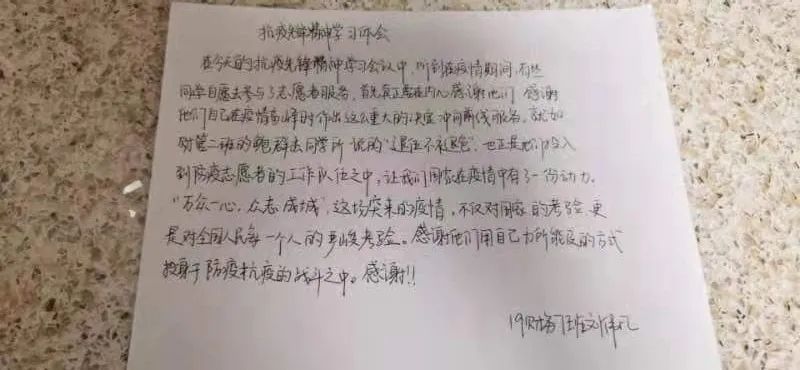 抗疫先锋精神学习体会
在今天的抗疫先锋精神学习会议中，听到在疫情期间，有些
同学自愿去参与了志愿者服务，首先真正要在内心感谢他们，感谢
他们自己在疫情高峰时作出这么重大的决定冲向前线服务。就如
财管二班的鲍群去同学所说的“退伍不褪色”，也正是他们投入
到防疫志愿者的工作队伍之中，让我们国家在疫情中有了一份动力。
“万众一心，众志成城”，这场突来的疫情，不仅对国家的考验，更
是对全国人民每一个人的严峻考验。感谢他们用自己力所能及的方式
投身于防疫抗疫的战斗之中。感谢!!
19财务